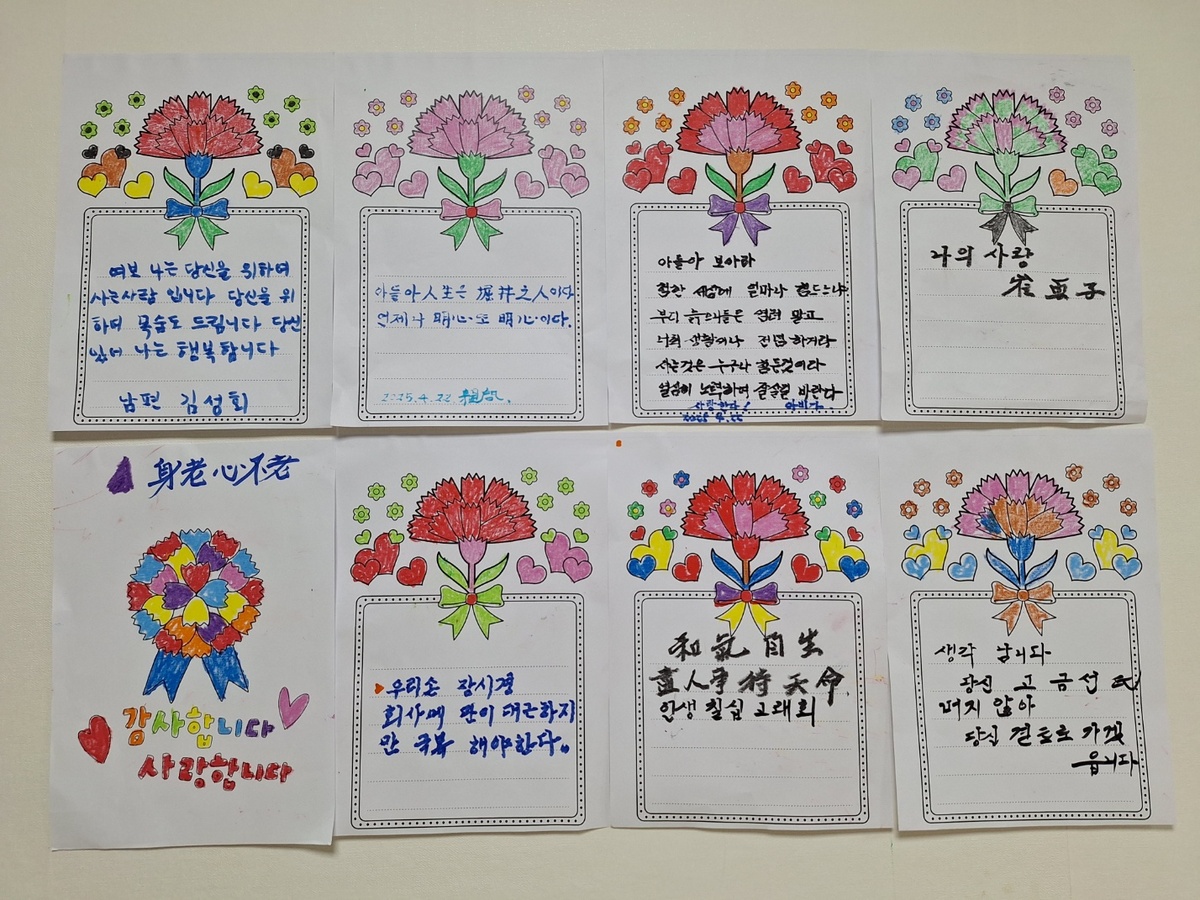 여보 나는 당신을 위하여
사는사람 입니다 당신을 위
하여 목숨도 드립니다 당신
있어 나는 행복합니다
남편 김성회
아들아 人生은 堀井之人이다
언제나 明心 또 明心이다.
2025.4.22
아들아 보아라
험한 세상에 얼마나 힘드느냐
부디 늙으이들은 염려 말고
너희 생활이나 전념 하거라
사는것은 누구나 힘든것이라
열심히 노력하며 잘살길 바란다
사랑한다! 아빠가.
2025 4.22
나의 사랑
崔 子
身老心不老
감사합니다
사랑합니다
우리손 장시경
회사에 일이 대근하지
만 극복 해야한다.
和氣自生
盡人事待天命
인생 칠십 고래희
생각 납니다
당신 고 금선 氏
머지 않아
당신 곁으로 가겠
읍니다